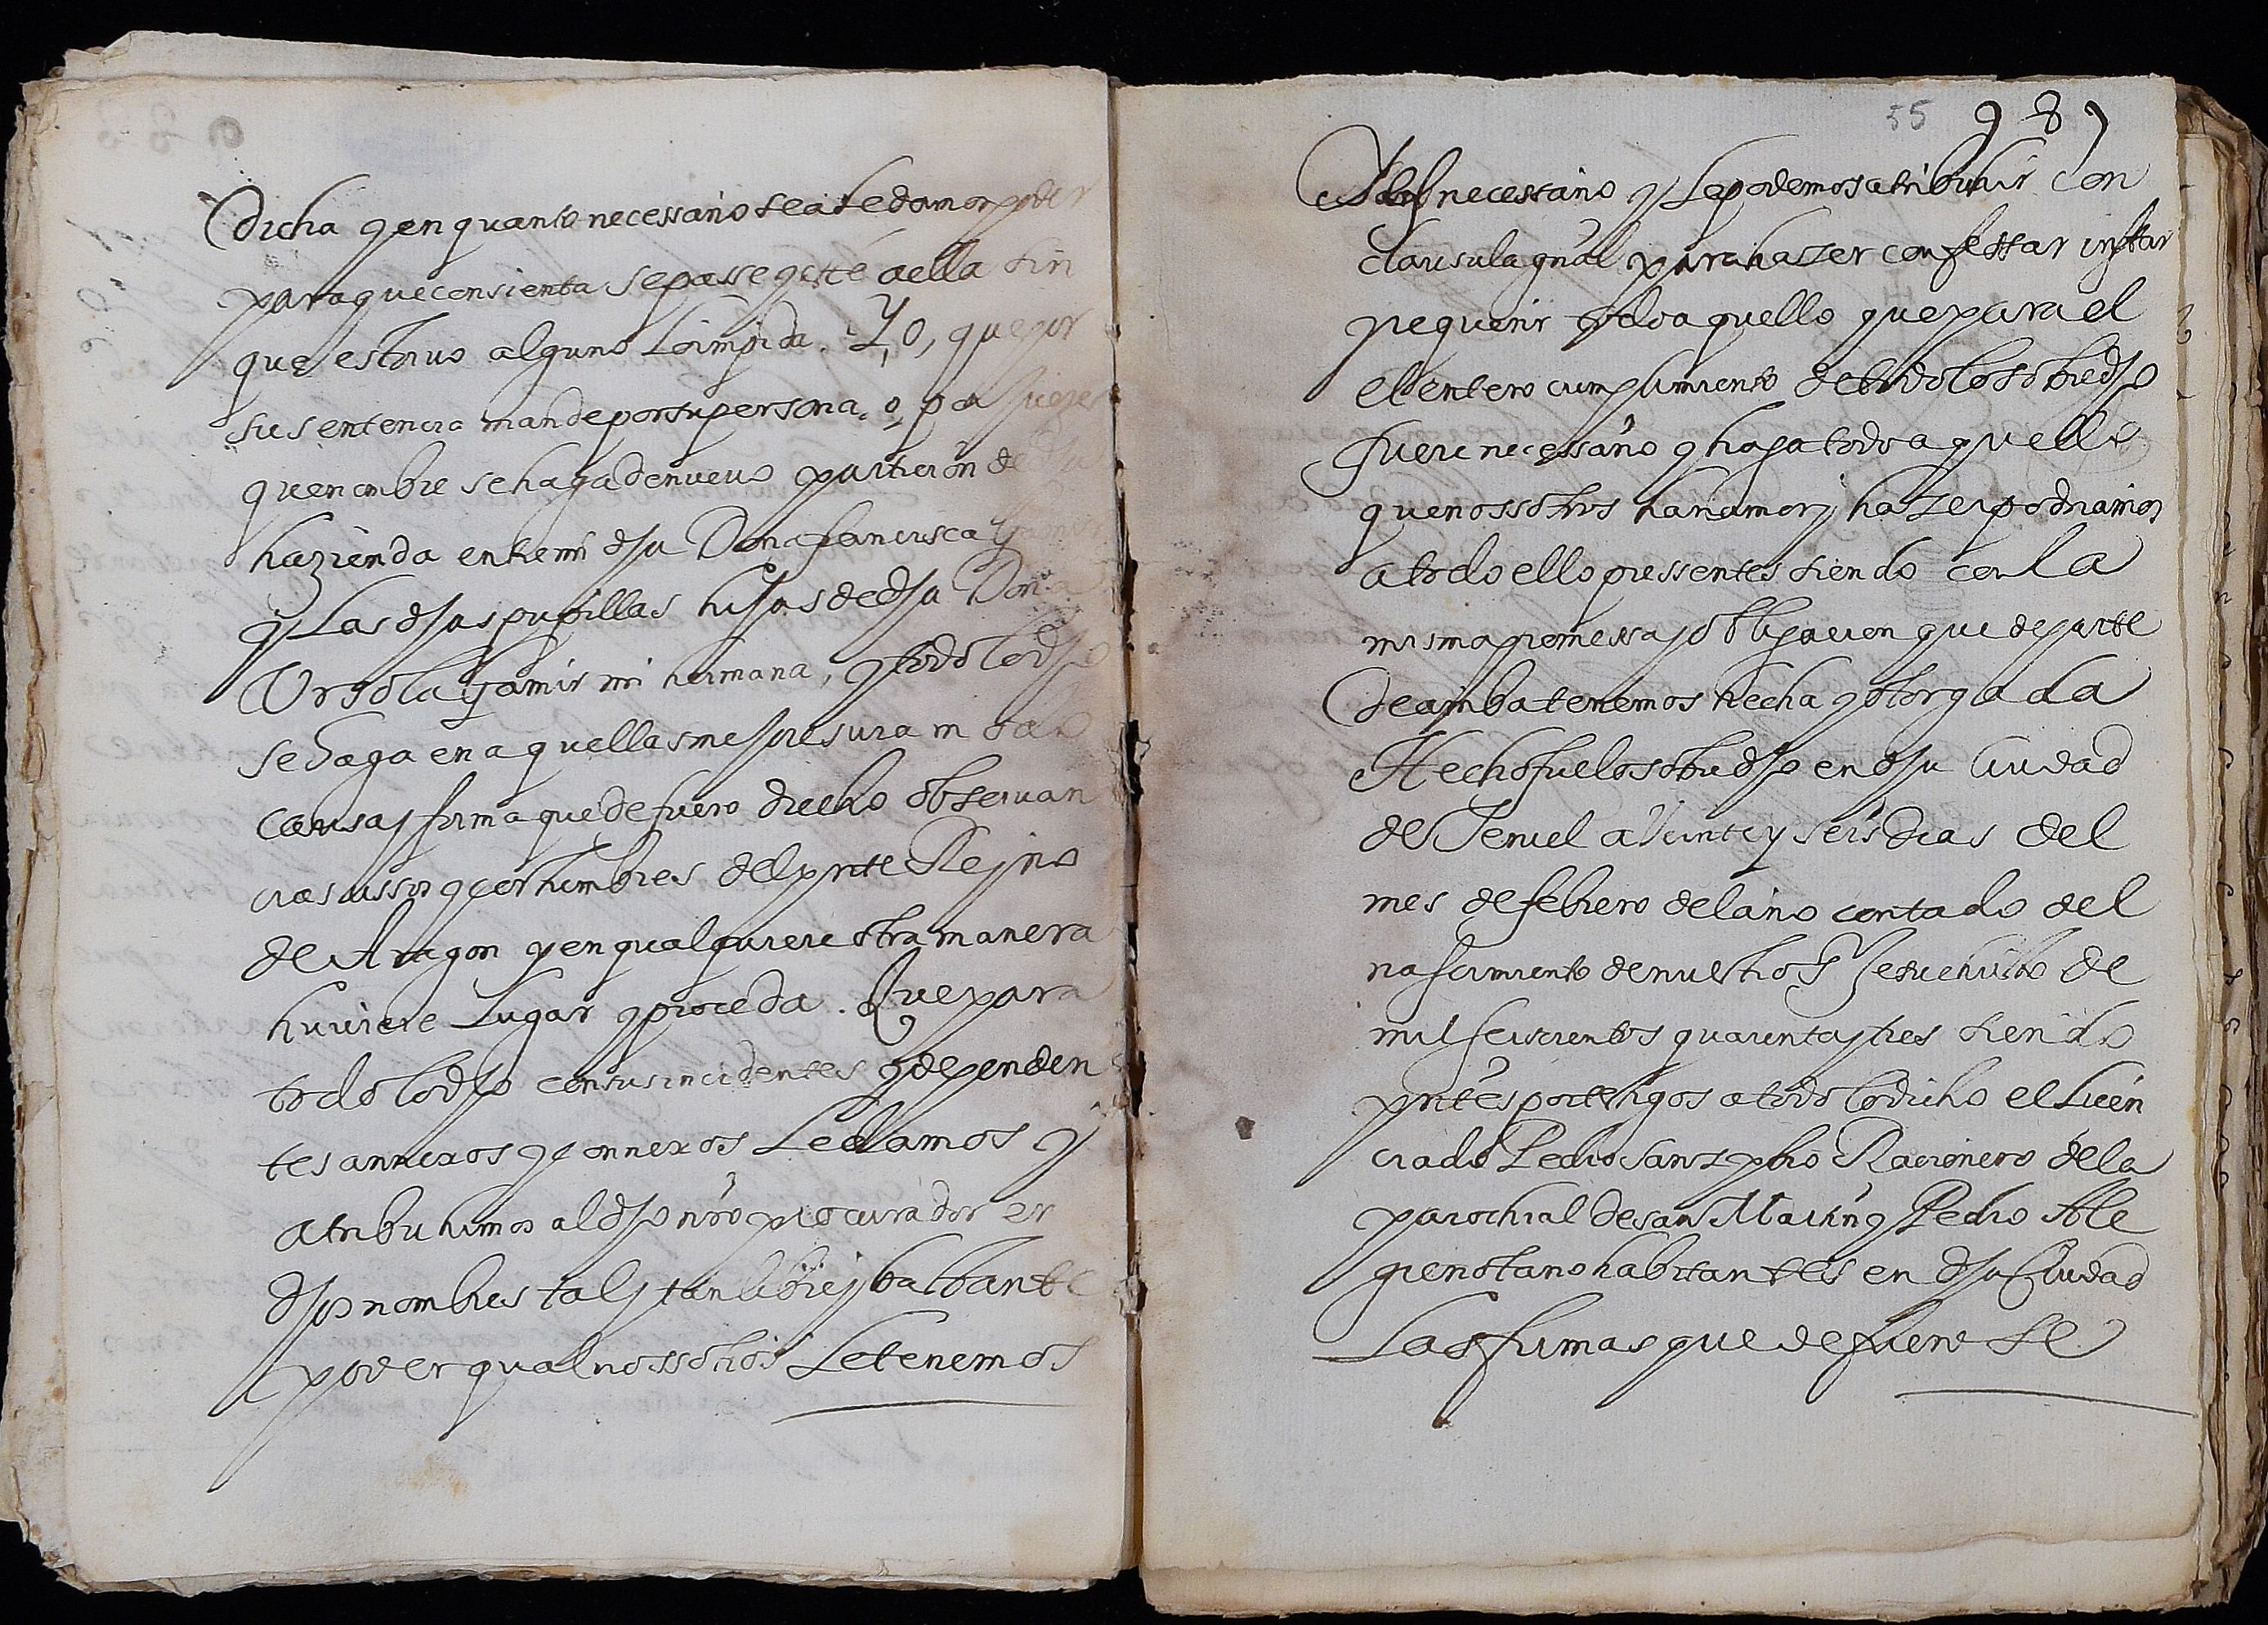 dicha y en quanto necessario sea le damos poder
para que consienta se passe y esté a ella sin
que estoruo alguno lo impida. Y, o, que por
su sentencia mande por su persona, o, por juezes
que nombre se haga de nueuo particion de
hazienda entre mi dha Dona francisca Gamir
y las dhas pupillas hijas de dha Dona
Vrsola Gamir mi hermana, y todo lo dho
se haga en aquellas mejores
causa y forma que de fuero drecho obseruan
cias ussos y costumbres del pnte Reyno
de Aragon y en qualquiere otra manera
huuiere lugar y proceda. Que para
todo lo dho con sus incidentes y dependen
tes annexos y connexos le damos y
atribuhimos al dho nro procurador en
dhos nombres tal y tan libre y bastante
poder qual nossotros le tenemos
55 981
necessario y le podemos atribuhir con
clausula gnal para hazer confessar instar
y requerir todo aquello que para el
el entero cumplimiento de todo lo sobredho
fuere necessario y haga todo aquello
que nossotros hariamos y hazer podriamos
a todo ello pressentes siendo con la
misma promessa y obligacion que de parte
de arriba tenemos hecha y otorgada
Hecho fue lo sobredho en dha Ciudad
de Teruel a Veinte y seis dias del
mes de febrero del año contado del
nascimiento de nuestro Sr Jesuchristo de
mil seiscientos quarenta y tres siendo
pntes por testigos a todo lo dicho el Licen
ciado Pedro Sanz pbro Racionero de la
parochial de san Martin y Pedro Ale
gre notario habitantes en dha Ciudad
Las firmas que de fuero se